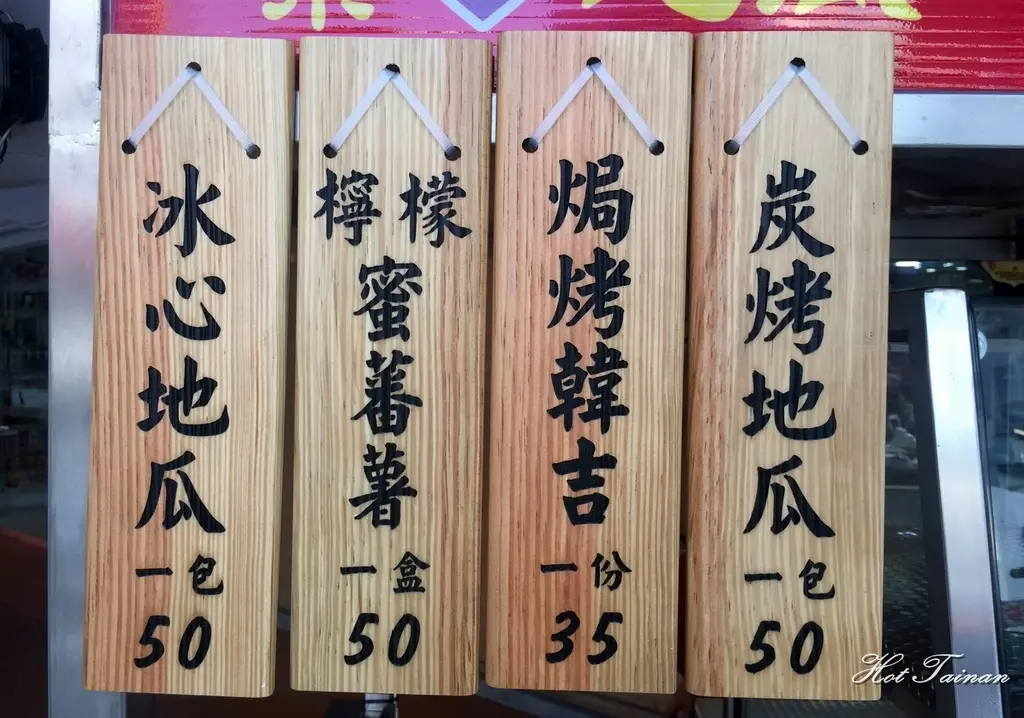 冰心地瓜
一包
50
檸檬
蜜蕃薯
一盒
50
焗烤韓吉
一份
35
炭烤地瓜
一包
50
Hot Tainan